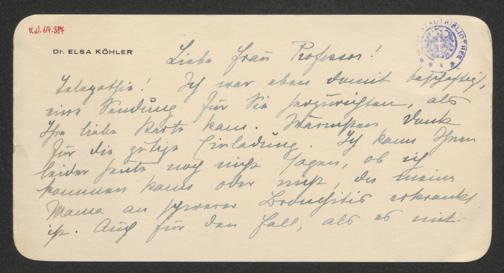 Dr. ELSA KÖHLER
Liebe Frau Professor!
Telepathie! Ich war eben damit beschäftigt,
eine Sendung für Sie herzurichten, als
Ihre liebe Karte kam. Wärmsten Dank
für die gütige Einladung. Ich kann Ihnen
leider heute noch nicht sagen, ob ich
kommen kann oder nicht, da meine
Mama an schwerer Bronchitis erkrankt
ist. Auch für den Fall, als es mir